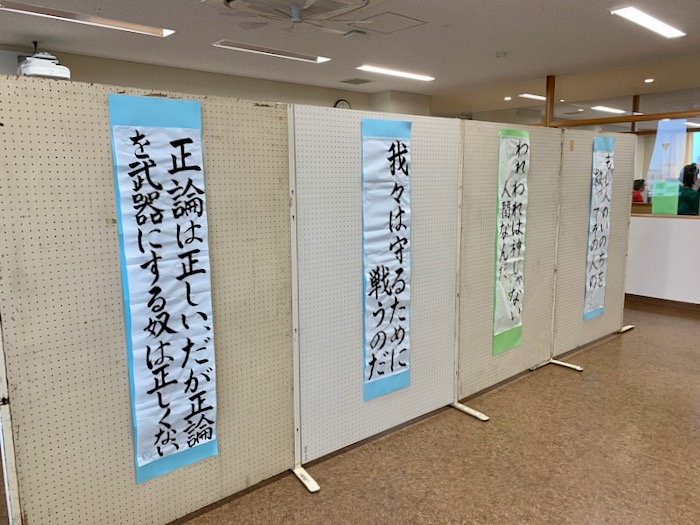 正論は正しい、だが正論
を武器にする奴は正しくない
我々は守るために
戦うのだ
われわれは神じゃない
人間なんだ
もし人のいのちを
救ってその人の